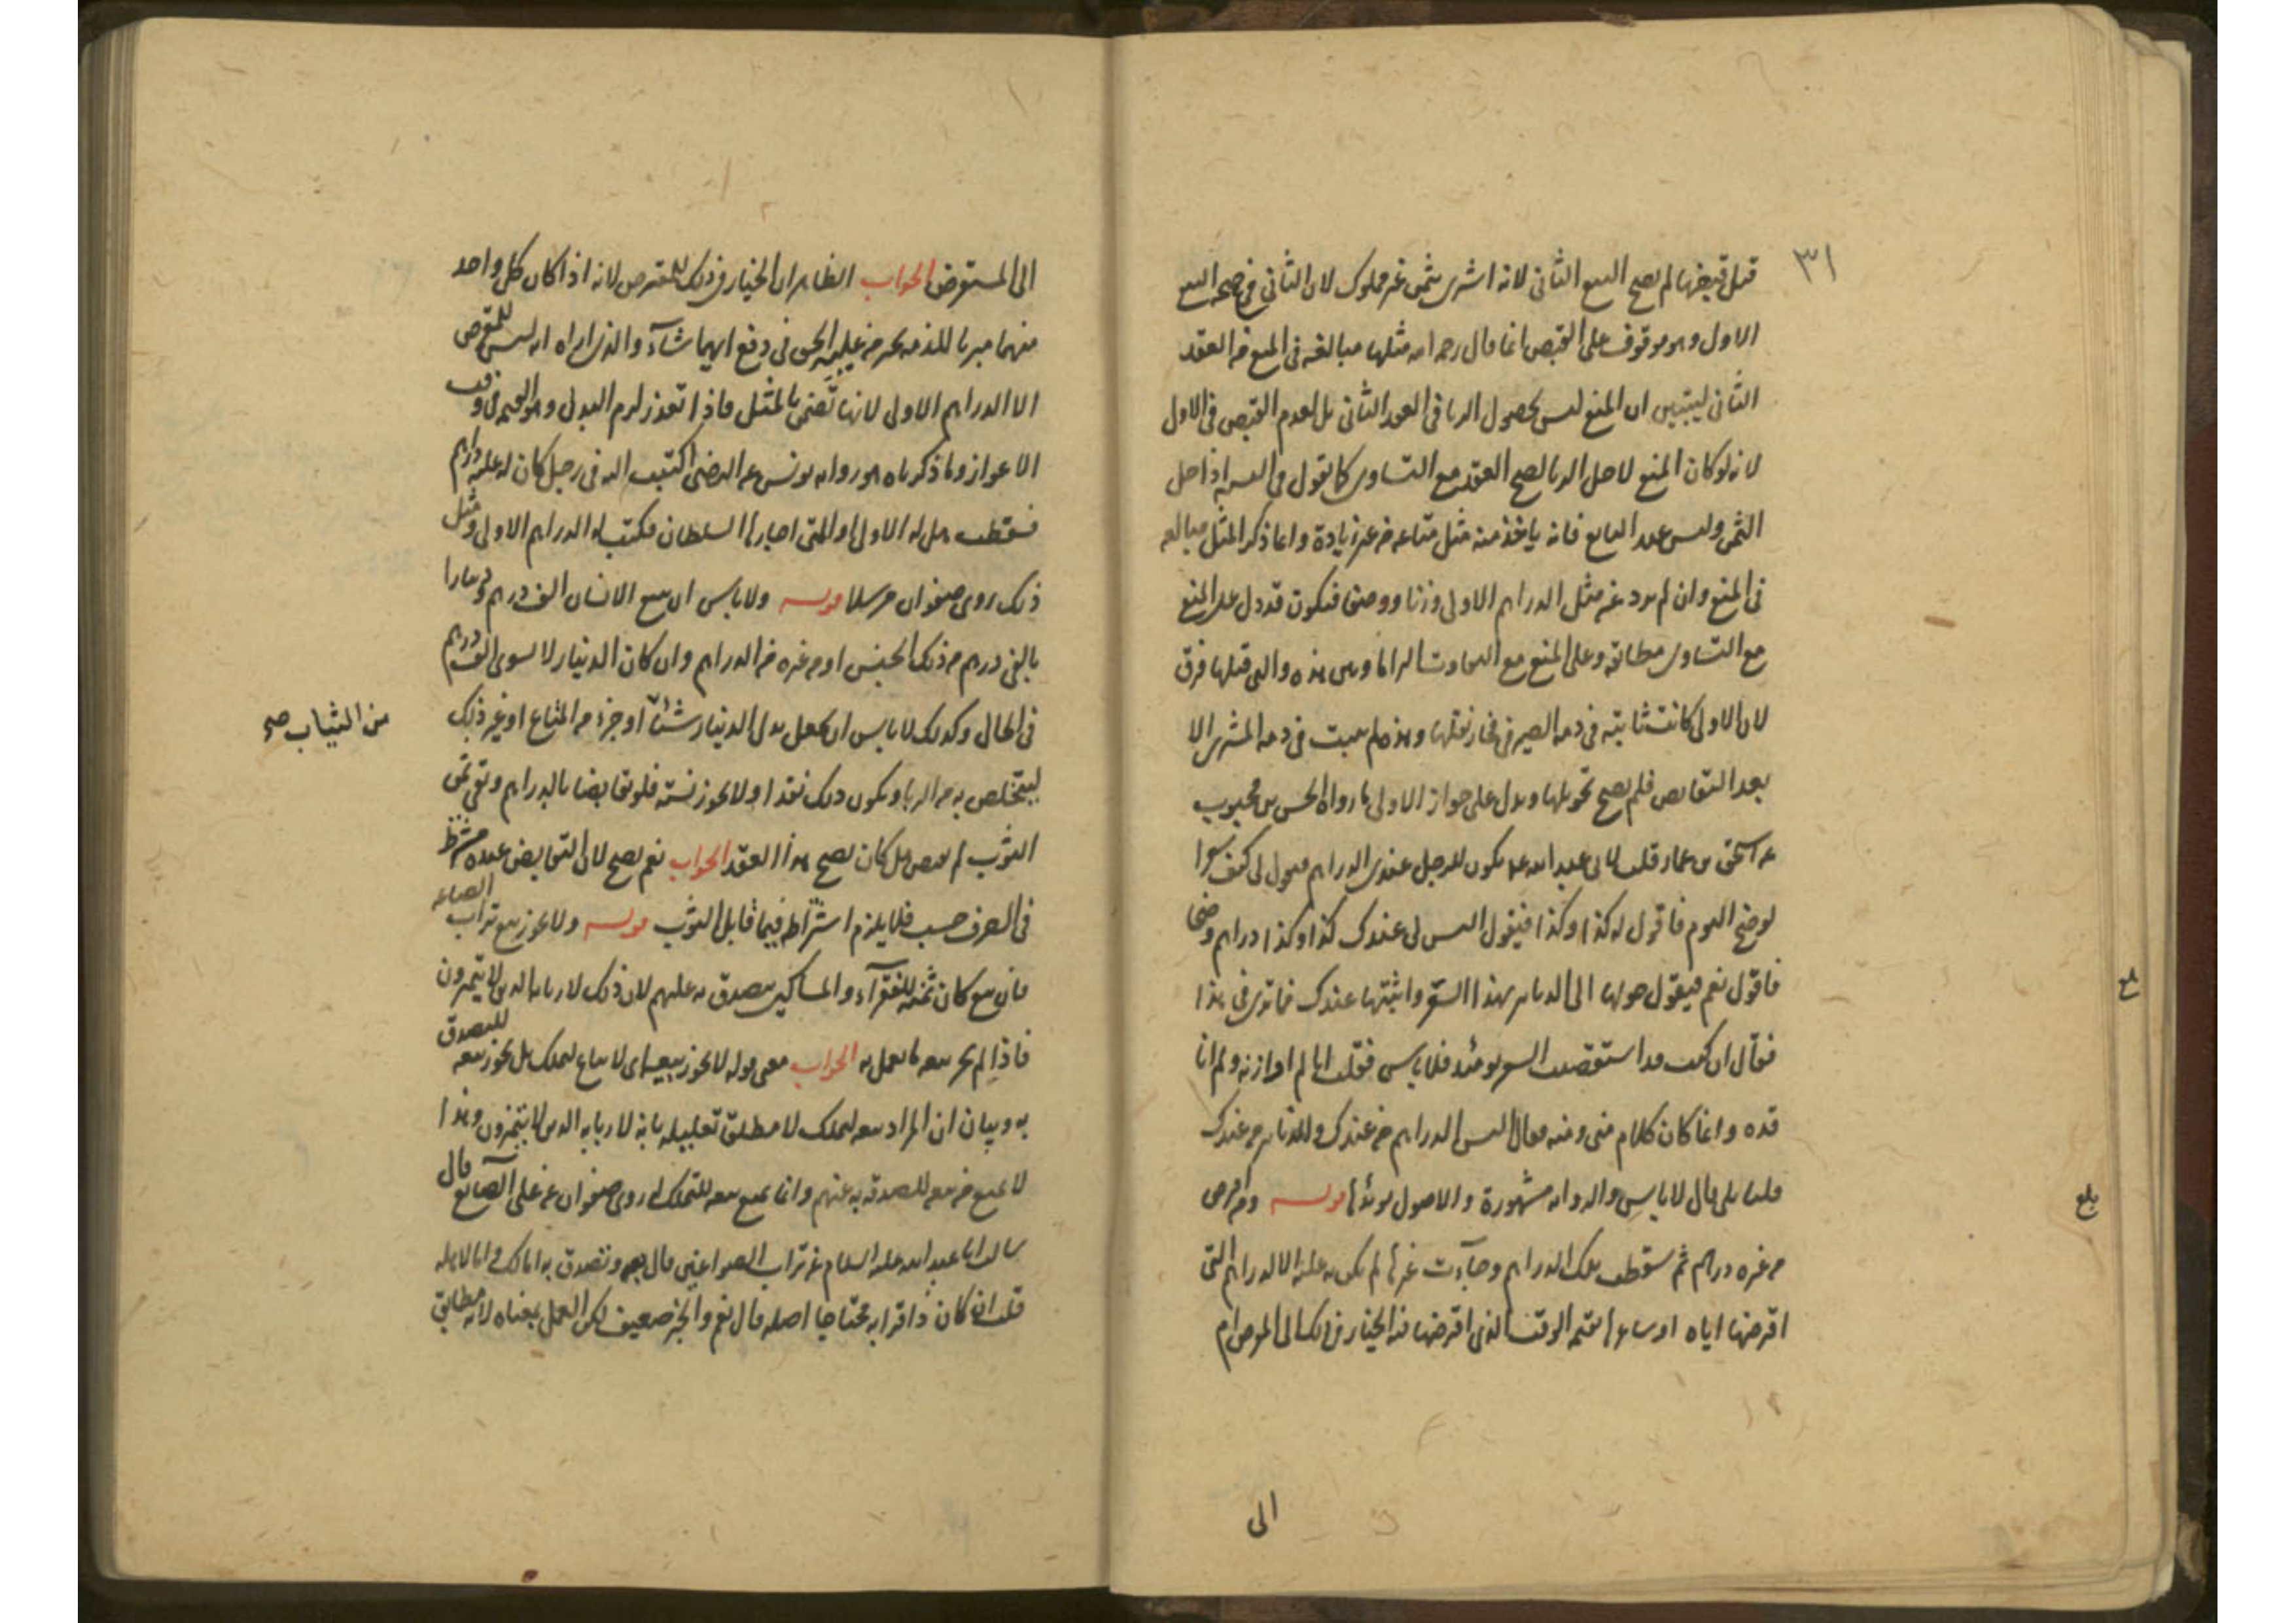 ٣١
قبل قبضها لم يصح البيع الثاني لانه اشترى بثمن غير مملوك لان الثاني فرع صحة البيع
الاول وهو موقوف على القبض انما قال رحمه الله مثلها مبالغة في المنع من العقد
الثاني ليتبين ان المنع ليس لحصول الربا في العقد الثاني بل لعدم القبض في الاول
لانه لو كان المنع لاجل الربا لصح العقد مع التساوي كما يقول في النسية اذا حل
الثمن وليس عند البايع فانه ياخذ منه مثل متاعه من غير زيادة وانما ذكر المثل مبالغة
في المنع وان لم يرد عنه مثل الدراهم الاولى وزنا ووصفا فيكون قد دل على المنع
مع التساوي مطابقة وعلى المنع مع التفاوت التزاما وبين هذه والتي قبلها فرق
لان الاولى كانت ثابتة في ذمة الصيرفي فجاز نقلها وهذه لم يثبت في ذمة المشتري الا
بعد التقابض فلم يصح تحويلها ويدل على جواز الاولى ما رواه الحسن بن محبوب
عن اسحق بن عمار قلت لابي عبد الله يكون للرجل عندي الدراهم فيقول لي كيف سعر
الوضح اليوم فاقول له كذا وكذا فيقول اليس لي عندك كذا وكذا دراهم وضحا
فاقول نعم فيقول حولها الى الدنانير بهذا السعر واثبتها عندك فما ترى في هذا
فقال ان كنت قد استقصيت السعر يومئذ فلا باس فقلت اني لم اوازنه ولم انا
قده وانما كان كلام مني ومنه فقال اليس الدراهم من عندك والدنانير من عندك
قلت بلى قال لا باس والرواية مشهورة والاصول يؤيدها قوله ومن اقرض
من غيره دراهم ثم سقطت تلك الدراهم وجاءت غيرها لم يكن له عليه الا الدراهم التي
اقرضها اياه او سعرها بقيمة الوقت الذي اقرضها فيه الخيار في ذلك الى المقرض ام
الى
بلغ
بلغ
الى المستقرض الجواب الظاهر ان الخيار في ذلك للمقترض لانه اذا كان كل واحد
منهما مبريا للذمة تخير من عليه الحق في دفع ايهما شاء والذي اراه انه ليس للمقرض
الا الدراهم الاولى لانها تضمن بالمثل فاذا تعذر لزم البدل وهو القيمة في وقت
الاعواز وما ذكرناه هو رواية يونس عن الرضى اكتتب اليه في رجل كان له عليه دراهم
فسقطت هل له الاولى او التي اجازها السلطان فكتب له الدراهم الاولى ومثل
ذلك روى صفوان مرسلا قوله ولا باس ان يبيع الانسان الف درهم ودينارا
بالفي درهم من ذلك الجنس او من غيره من الدراهم وان كان الدينار لا يسوى الف درهم
في الحال وكذلك لا باس ان يجعل بدل الدينار شيئا او جزء من المتاع او غير ذلك
من الثياب صح
ليتخلص به من الربا ويكون ذلك نقدا ولا يجوز نسئة فلو تقابضا بالدراهم وبقي ثمن
الثوب لم يقبض هل كان يصح هذا العقد الجواب نعم يصح لان التقابض عنده مشترط
في الصرف حسب فلا يلزم اشتراطه فيما قابل الثوب قوله ولا يجوز بيع تراب الصياغة
فان بيع كان ثمنه للفقرآء والمساكين يتصدق به عليهم لان ذلك لاربابه الذين لا يتميزون
فاذا لم يجز بيعه ما يعمل به الجواب معنى قوله لا يجوز بيعه اي لا يباع ليملك بل يجوز بيعه للتصدق
به وبيان ان المراد بيعه ليملك لا مطلق تعليله بانه لاربابه الذين لا يتميزون وهذا
لا يمنع من بيعه للصدقة به عنهم وانما يمنع بيعه للتملك روى صفوان عن علي الصايغ قال
سالت ابا عبد الله عليه السلام عن تراب الصواغين قال بعه وتصدق به اما لك واما لاهله
قلت ان كان ذا قرابة محتاجا اصله قال نعم والخبر ضعيف لكن العمل بمعناه لانه مطابق